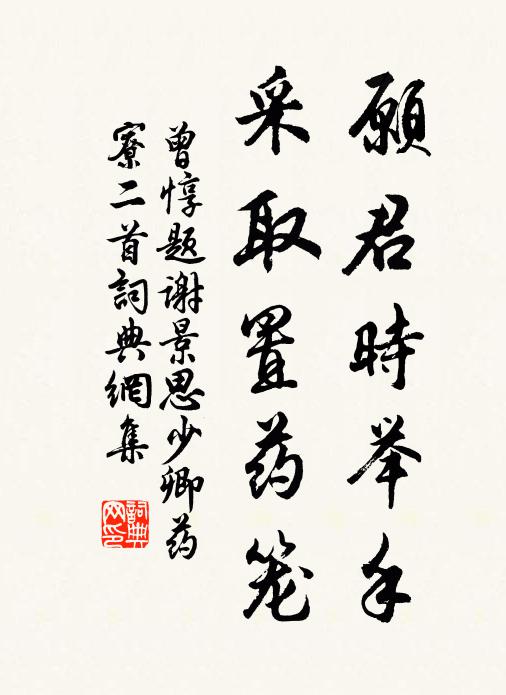 願君時举手
采取置药笼
曾惇题谢景思少卿药
寮二首詞典網集
詞典
网印